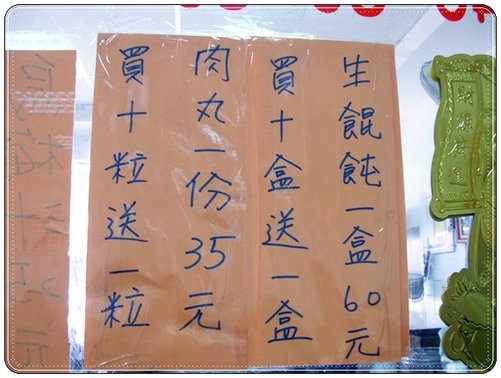 生餛飩一盒60元
買十盒送一盒
肉丸一份35元
買十粒送一粒